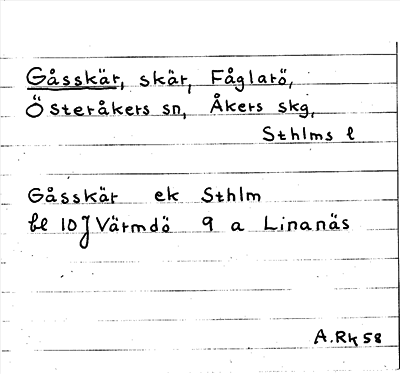 Gåsskär, skär, Fåglarö,
Österåkers sn, Åkers skg,
Sthlms l
Gåsskär ek Sthlm
bl 10J Värmdö 9 a Linanäs
A.Rk 58